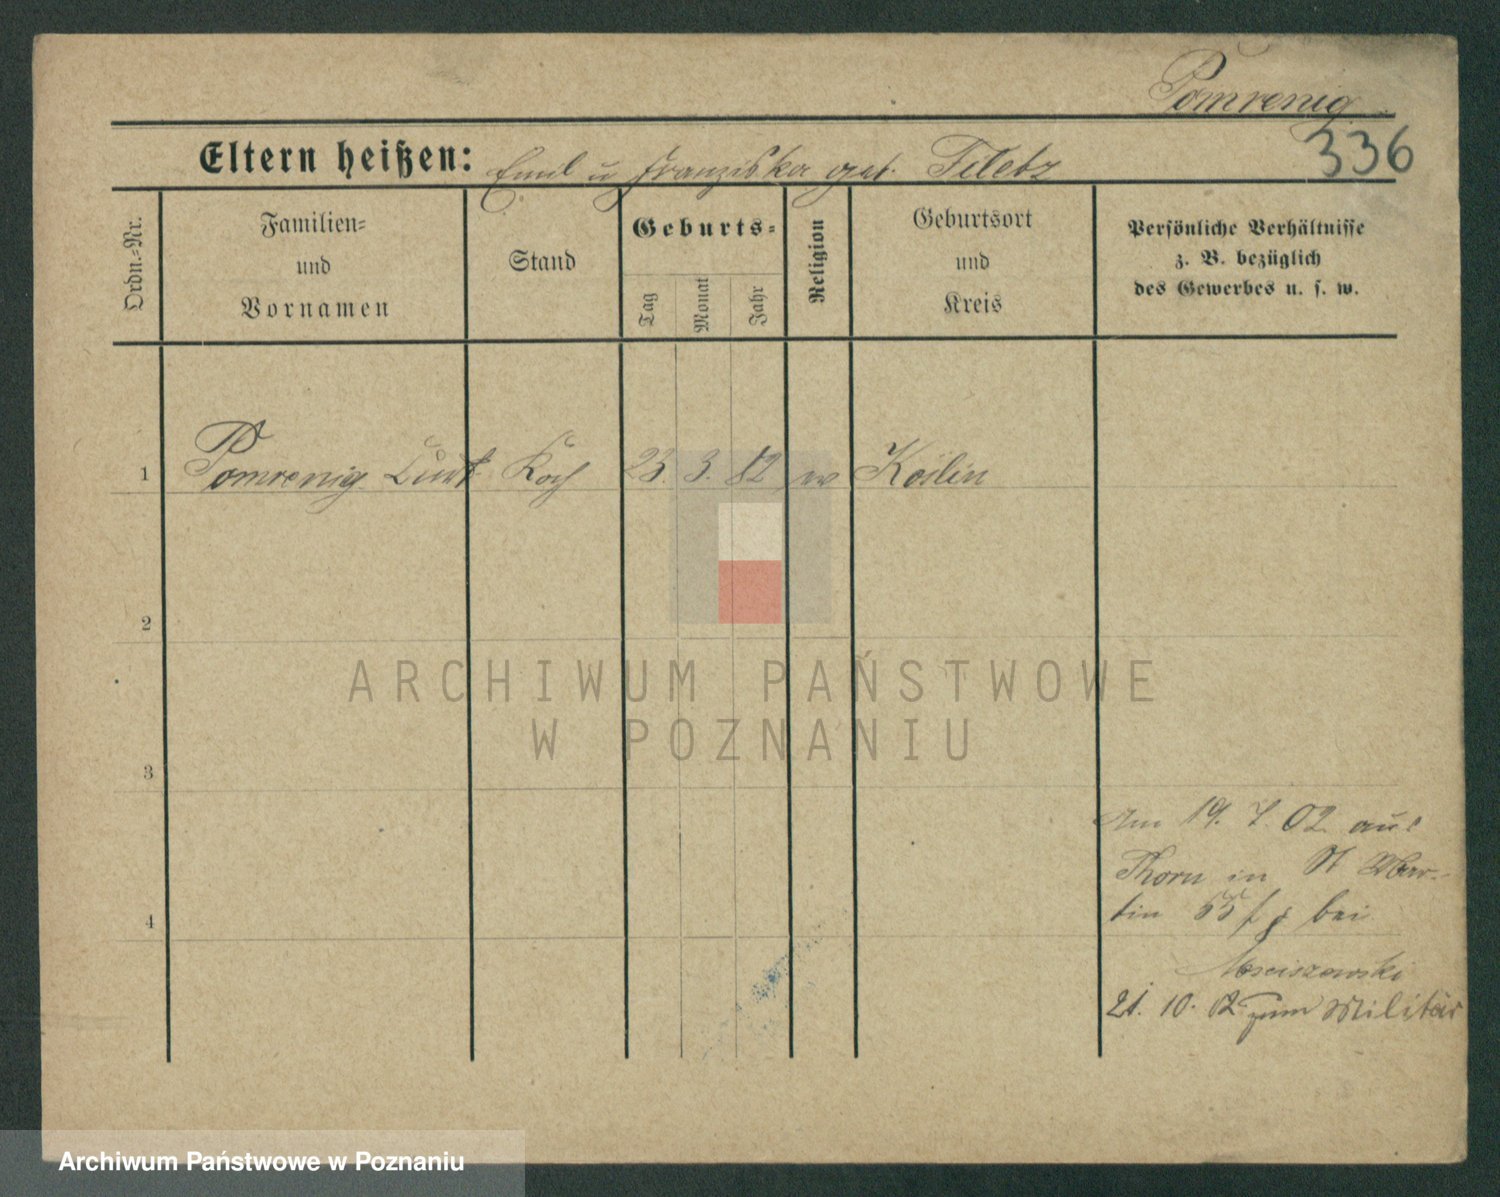 Pomrenig
336
Eltern heißen: Emil u Franziska geb. Tiletz
Ordn.-Nr.
Familien-
und
Vornamen
Stand
Geburts-
Tag
Monat
Jahr
Religion
Geburtsort
und
Kreis
Persönliche Verhältnisse
z. B. bezüglich
des Gewerbes u. s. w.
1 Pomrenig Curt Koch 23. 3. 82 ev Köslin
2
3
4
Am 19. 7. 02 aus
Thorn in St Mar-
tin bei
Mosciszewski
21. 10. 02 zum Militär
ARCHIWUM PAŃSTWOWE
W POZNANIU
Archiwum Państwowe w Poznaniu